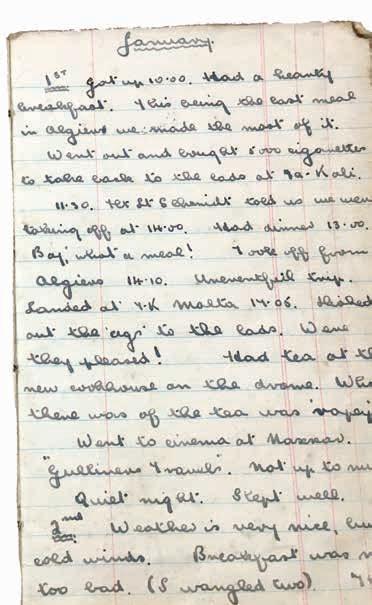 January.
1st Got up 10.00. Had a hearty
breakfast. This being the last meal
in Algiers we made the most of it.
Went out and bought 5000 cigarettes
to take back to the lads at Ta-Kali.
11.30. Flt Lt Schmidt told us we were
taking off at 14.00. Had dinner 13.00.
Boy, what a meal! Took off from
Algiers 14.10. Uneventful trip.
Landed at T.K Malta 17.05. Dished
out the 'cigs' to the lads. Were
they pleased! Had tea at th
new cookhouse on the drome. Wha
there was of the tea was
Went to cinema at Naxxar.
"Gullivers Travels". Not up to mu
Quiet night. Slept well.
2nd Weather is very nice, bu
cold winds. Breakfast was n
too bad. (I wangled two).